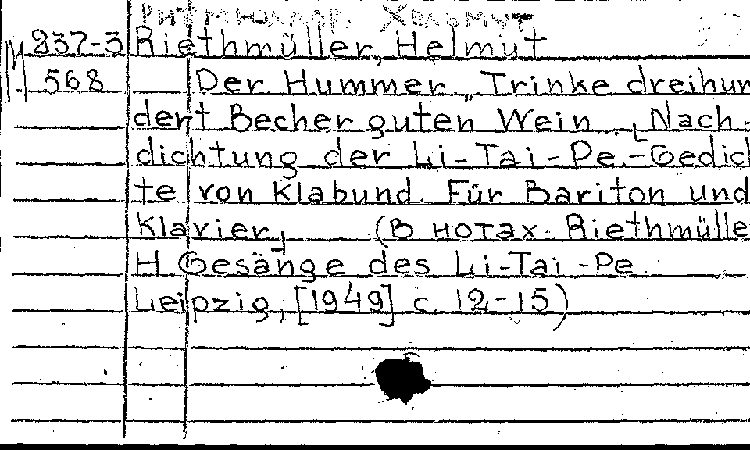 Ритмюллер, Хельмут
М 937-3 Riethmüller, Helmut
568 Der Hummer „Trinke dreihun
dert Becher guten Wein... [Nach-
dichtung der Li-Tai-Pe-Gedich
te von Klabund. Für Bariton und
Klavier] (В нотах: Riethmülle
H. Gesänge des Li-Tai-Pe.
Leipzig, [1949] с. 12-15)